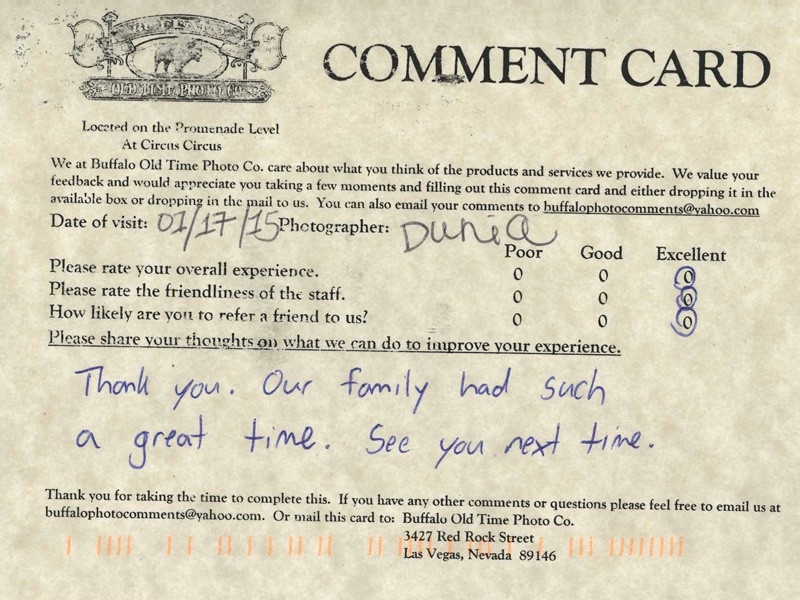 OLD TIME PHOTO CO.
COMMENT CARD
Located on the Promenade Level
At Circus Circus
We at Buffalo Old Time Photo Co. care about what you think of the products and services we provide. We value your
feedback and would appreciate you taking a few moments and filling out this comment card and either dropping it in the
available box or dropping in the mail to us. You can also email your comments to buffalophotocomments@yahoo.com
Date of visit: 01/17/15 Photographer: Dunia
Poor Good Excellent
Please rate your overall experience. 0 0 0
Please rate the friendliness of the staff. 0 0 0
How likely are you to refer a friend to us? 0 0 0
Please share your thoughts on what we can do to improve your experience.
Thank you. Our family had such
a great time. See you next time.
Thank you for taking the time to complete this. If you have any other comments or questions please feel free to email us at
buffalophotocomments@yahoo.com. Or mail this card to: Buffalo Old Time Photo Co.
3427 Red Rock Street
Las Vegas, Nevada 89146